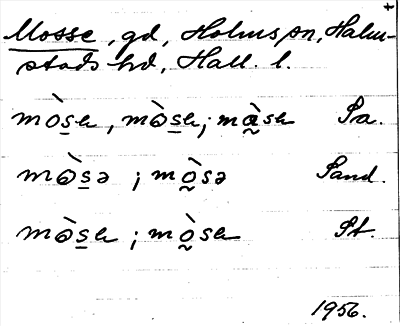 Mosse, gd, Holms sn, Halm-
stads hd, Hall. l.
mòs̲ɐ, mɷ̀s̲ɐ; mà̰sɐ Sa.
mɷ̀s̲ə; mò̰sə Sand.
mɷ̀s̲ɐ; mò̰sɐ St.
1956.